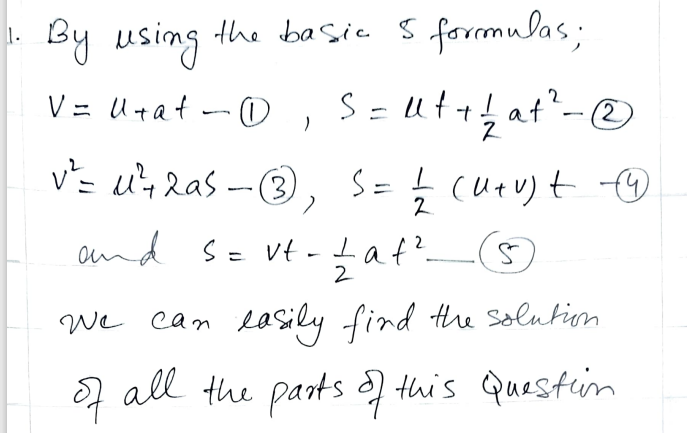 1. By using the basic 5 formulas;
V = u+at — ① , S = ut + ½ at² — ②
v² = u² + 2as — ③, S = ½ (u+v) t — ④
and S = vt - ½ at² — ⑤
We can easily find the solution
of all the parts of this Question